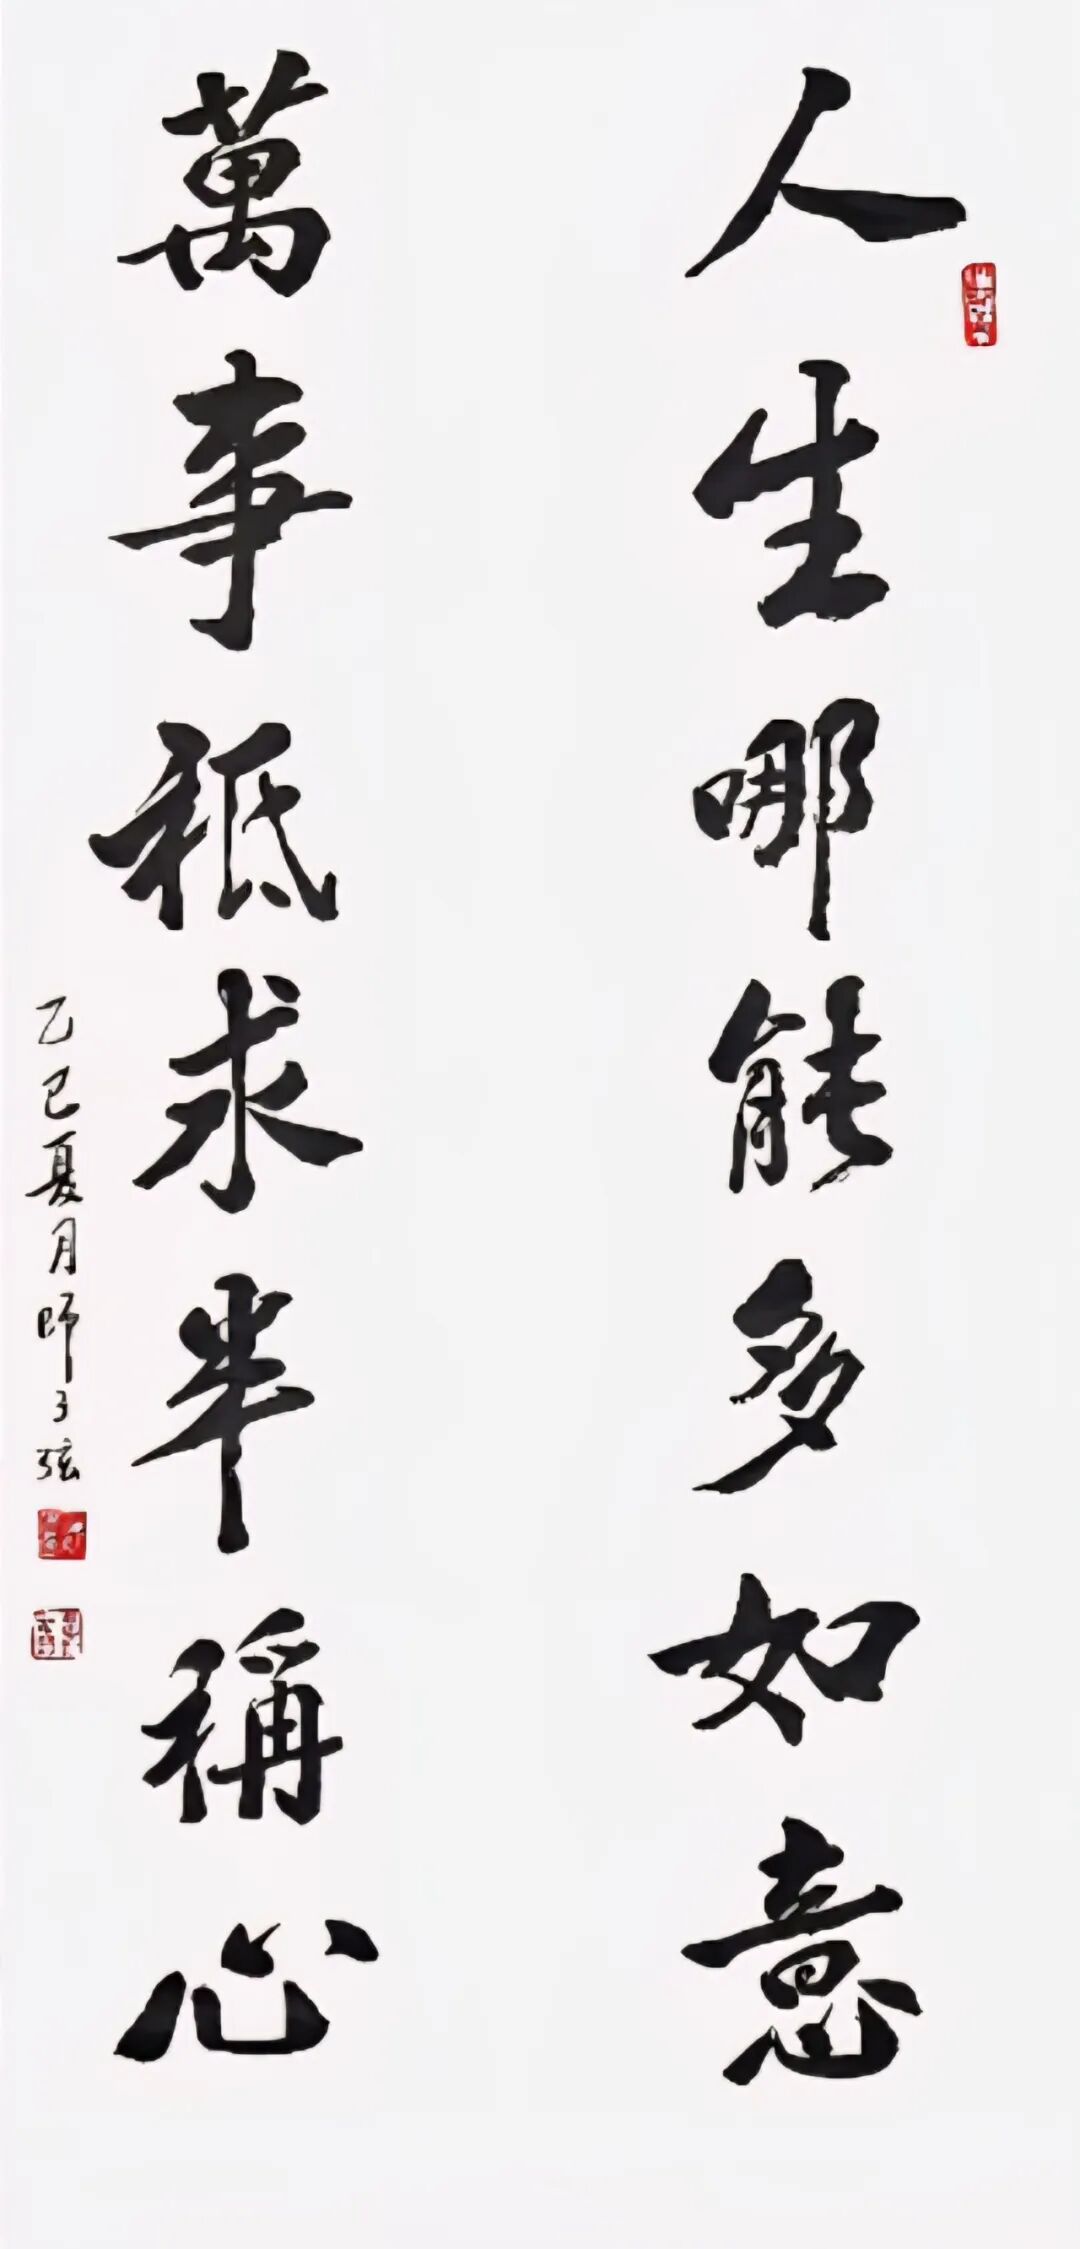 人生哪能多如意
萬事秖求半稱心
乙巳夏月師子弦